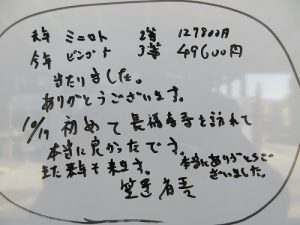 ミニロト 2等 127800円
今年 ビンゴ 3等 49600円
当たりました。
ありがとうございます。
10/19 初めて 長福寿寺を訪れて
本当に良かったです。
また来ます。 本当にありがとうご
ざいました。